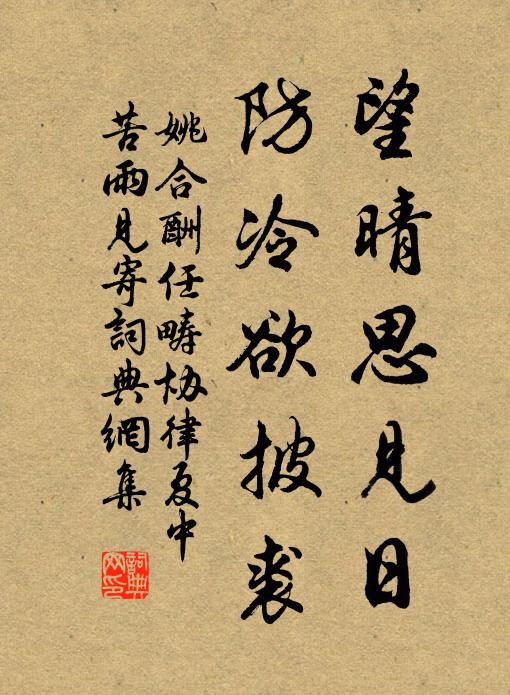 望晴思見日
防冷欲披裘
姚合酬任疇協律夏中
苦雨見寄詞典網集
詞典
网印